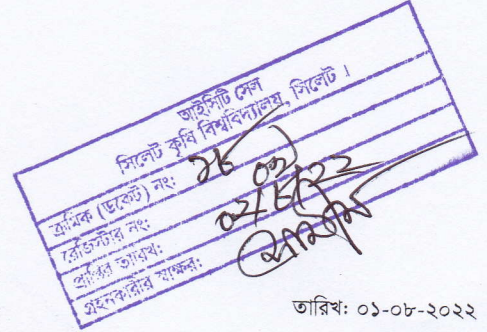 আইসিটি সেল
সিলেট কৃষি বিশ্ববিদ্যালয়, সিলেট ।
ক্রমিক (ডকেট) নং: ১৮
রেজিস্টার নং: ০১
প্রাপ্তির তারিখ: ০২/৮/২২
গ্রহনকারীর স্বাক্ষর:
তারিখ: ০১-০৮-২০২২